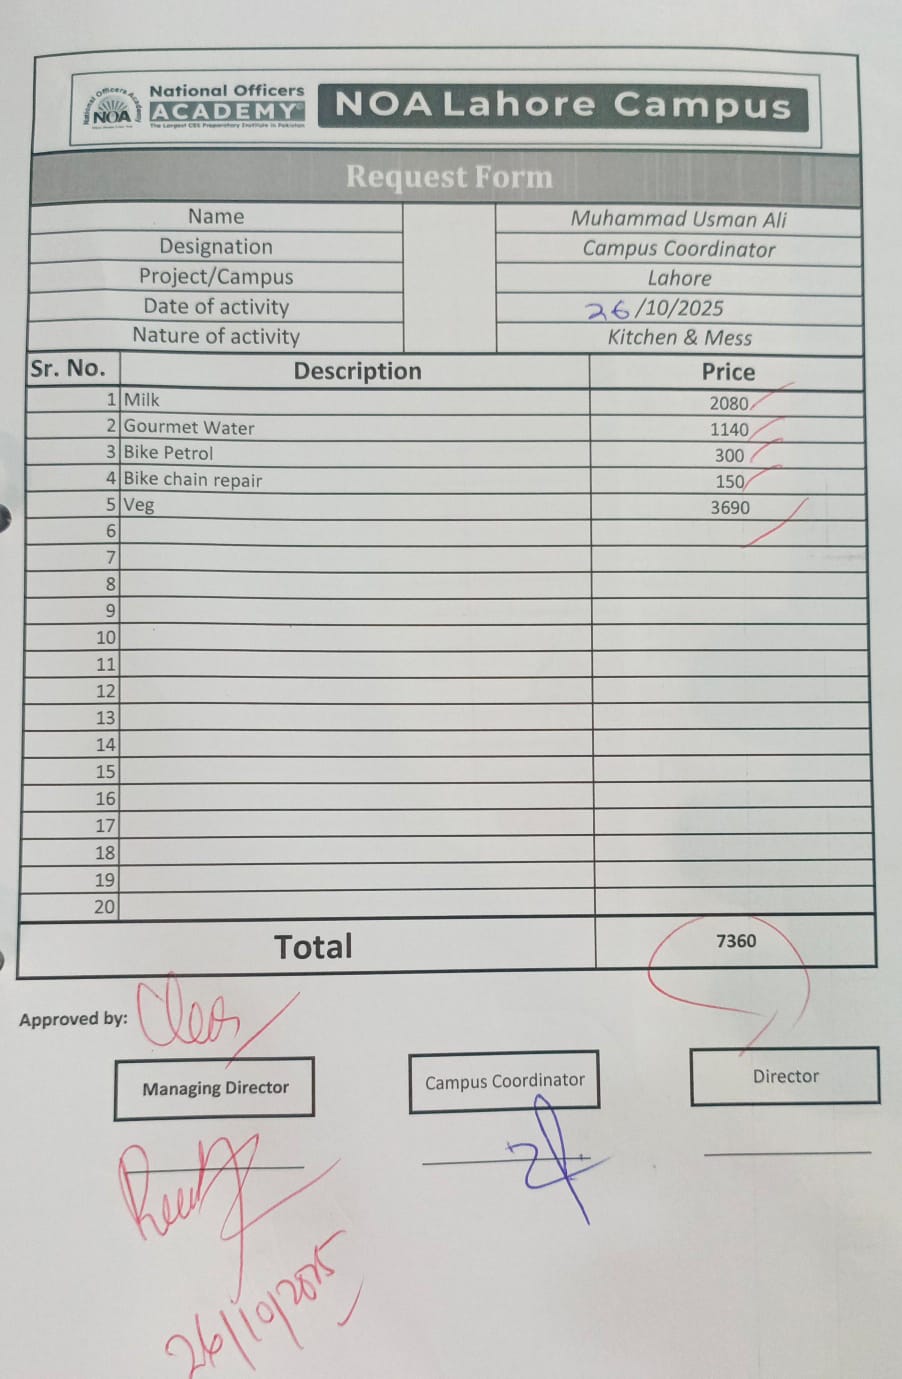 National Officers Academy
NOA
National Officers
ACADEMY
The Largest CSS Preparatory Institute in Pakistan
NOA Lahore Campus
Request Form
Name Muhammad Usman Ali
Designation Campus Coordinator
Project/Campus Lahore
Date of activity 26/10/2025
Nature of activity Kitchen & Mess
Sr. No. Description Price
1 Milk 2080
2 Gourmet Water 1140
3 Bike Petrol 300
4 Bike chain repair 150
5 Veg 3690
6
7
8
9
10
11
12
13
14
15
16
17
18
19
20
Total 7360
Approved by: Clear
Managing Director Campus Coordinator Director
26/10/2025